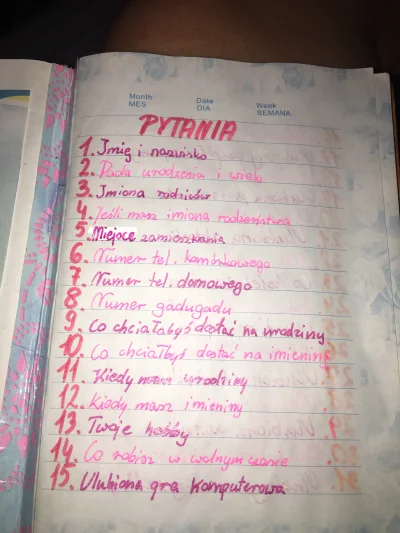 Month Date Week
MES DIA SEMANA
PYTANIA
1. Imię i nazwisko
2. Data urodzenia i wiek
3. Imiona rodziców
4. Jeśli masz imiona rodzeństwa
5. Miejsce zamieszkania
6. Numer tel. komórkowego
7. Numer tel. domowego
8. Numer gadugadu
9. Co chciałabyś dostać na urodziny
10. Co chciałbyś dostać na imieniny
11. Kiedy masz urodziny
12. Kiedy masz imieniny
13. Twoje hobby
14. Co robisz w wolnym czasie
15. Ulubiona gra komputerowa